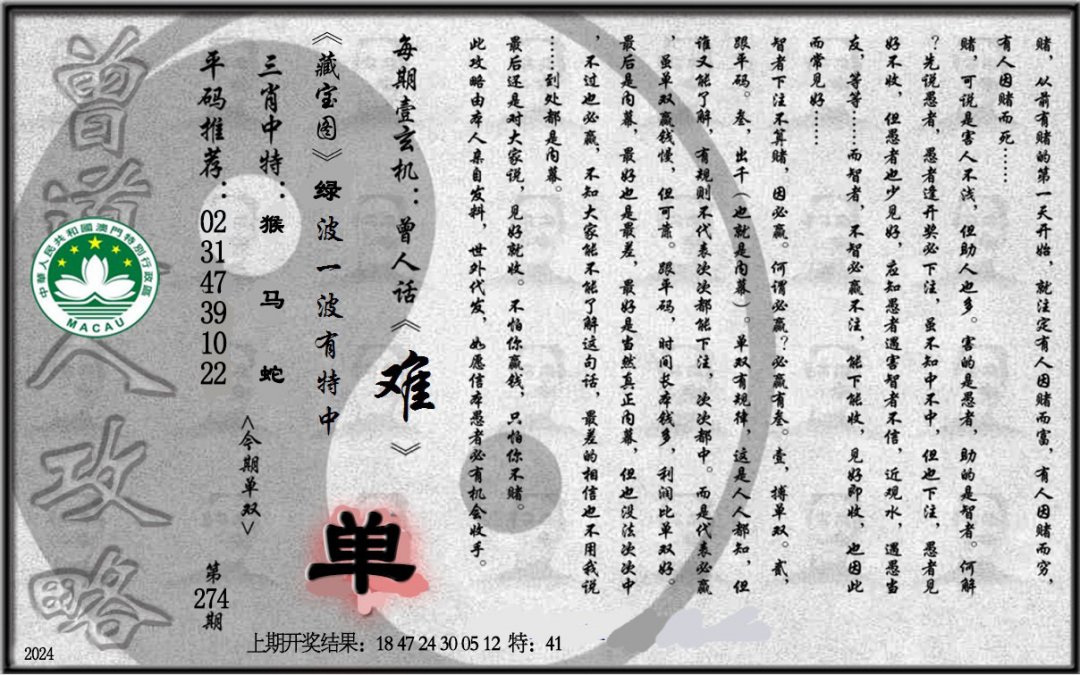 赌，从前有赌的第一天开始，就注定有人因赌而富，有人因赌而穷，
有人因赌而死……
赌，可说是害人不浅，但助人也多。害的是愚者，助的是智者。何解
？先说愚者，愚者逢开奖必下注，虽不知中不中，但也下注，愚者见
好不收，但愚者也少见好，应知愚者遇害智者不信，近观水，遇愚当
友，等等……而智者，不智必赢不注，能下能收，见好即收，也因此
而常见好……
智者下注不算赌，因必赢。何谓必赢？必赢有叁。壹，搏单双。贰，
跟平码。叁，出千（也就是内幕）。单双有规律，这是人人都知，但
谁又能了解，有规则不代表次次都能下注，次次都中。而是代表必赢
，虽单双赢钱慢，但可靠。跟平码，时间长本钱多，利润比单双好。
最后是内幕，最好也是最差，最好是当然真正内幕，但也没法次次中
，不过也必赢，不知大家能不能了解这句话，最差的相信也不用我说
……到处都是内幕。
最后还是对大家说，见好就收。不怕你赢钱，只怕你不赌。
此攻略由本人亲自发料，世外代发，如愿信本愚者必有机会收手。
每期壹玄机：曾人话《难》
《藏宝图》绿波一波有特中
单
三肖中特：猴 马 蛇
<今期单双>
平码推荐：02 31 47 39 10 22
第274期
曾道人攻略
中華人民共和國澳門特別行政區
MACAU
上期开奖结果：18 47 24 30 05 12 特：41
2024